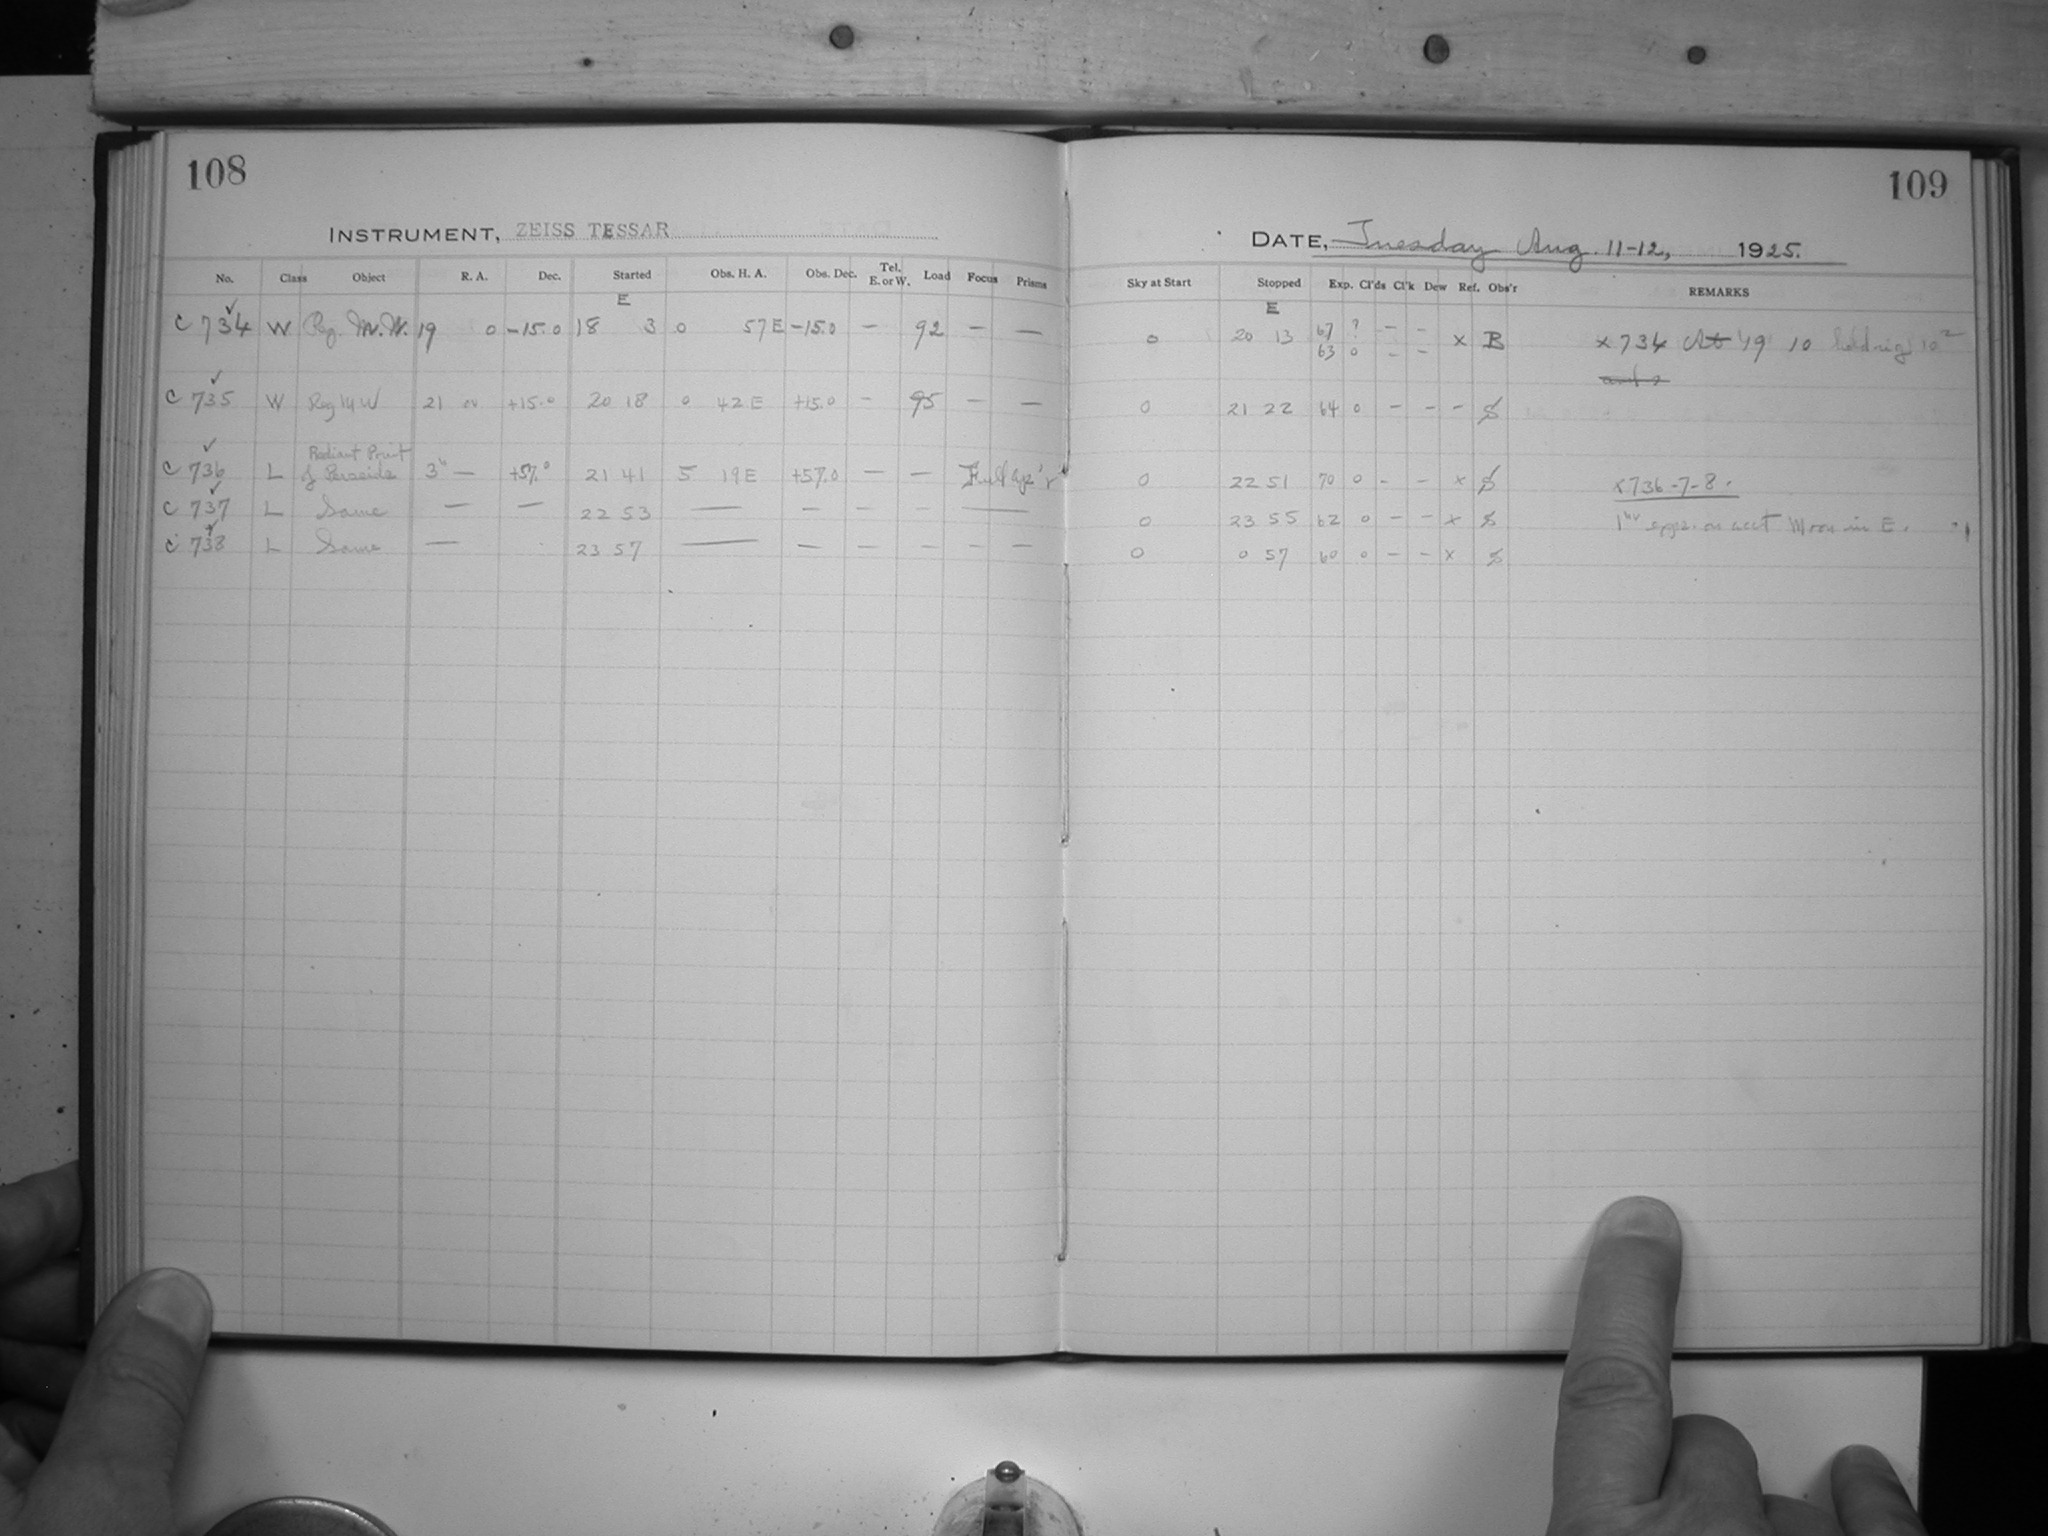 108
INSTRUMENT, ZEISS TESSAR
No. Class Object R. A. Dec. Started Obs. H. A. Obs. Dec. Tel. E. or W. Load Focus Prisms
E
C 734 W Reg. M.W. 19 0 -15.0 18 3 0 57 E -15.0 — 92 — —
C 735 W Reg M W 21 00 +15.0 20 18 0 42 E +15.0 — 95 — —
Radiant Point
C 736 L of Perseids 3h — +57.0 21 41 5 19 E +57.0 — — Full
C 737 L Same — — 22 53 — — — — —
C 738 L Same — 23 57 — — — — — —
109
DATE, Tuesday Aug. 11-12, 1925.
Sky at Start Stopped Exp. Cl'ds Cl'k Dew Ref. Obs'r REMARKS
E
0 20 13 67 ? - - x B x 734 At 19 10
63 0 - -
0 21 22 64 0 - - - S
0 22 51 70 0 - - x S x 736-7-8.
0 23 55 62 0 - - x S 1hr on acct Moon in E.
0 0 57 60 0 - - x S